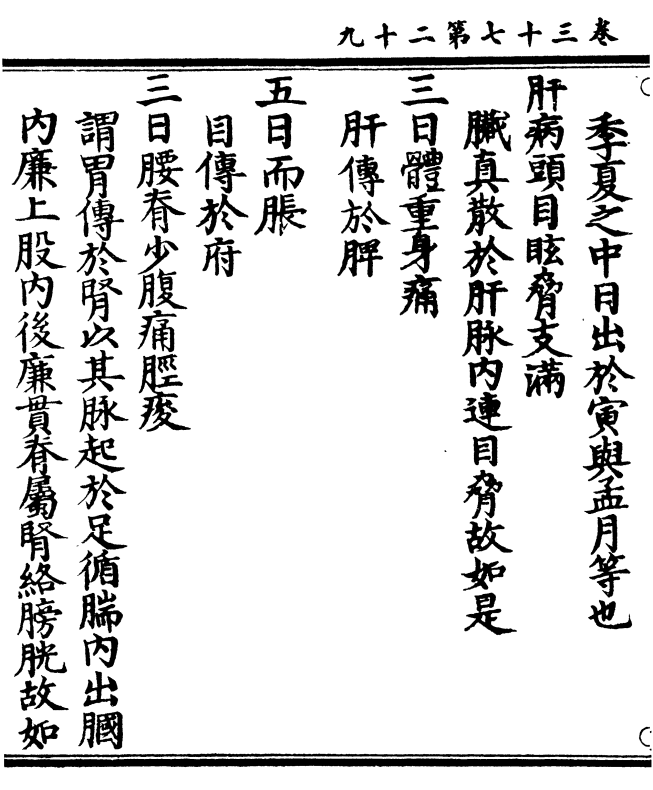 卷三十七第二十九
季夏之中日出於寅與孟月等也
肝病頭目眩脅支滿
臟真散於肝脉內連目脅故如是
三日體重身痛
肝傳於脾
五日而脹
自傳於府
三日腰脊少腹痛脛痠
謂胃傳於腎以其脉起於足循腨內出膕
內廉上股內後廉貫脊屬腎絡膀胱故如